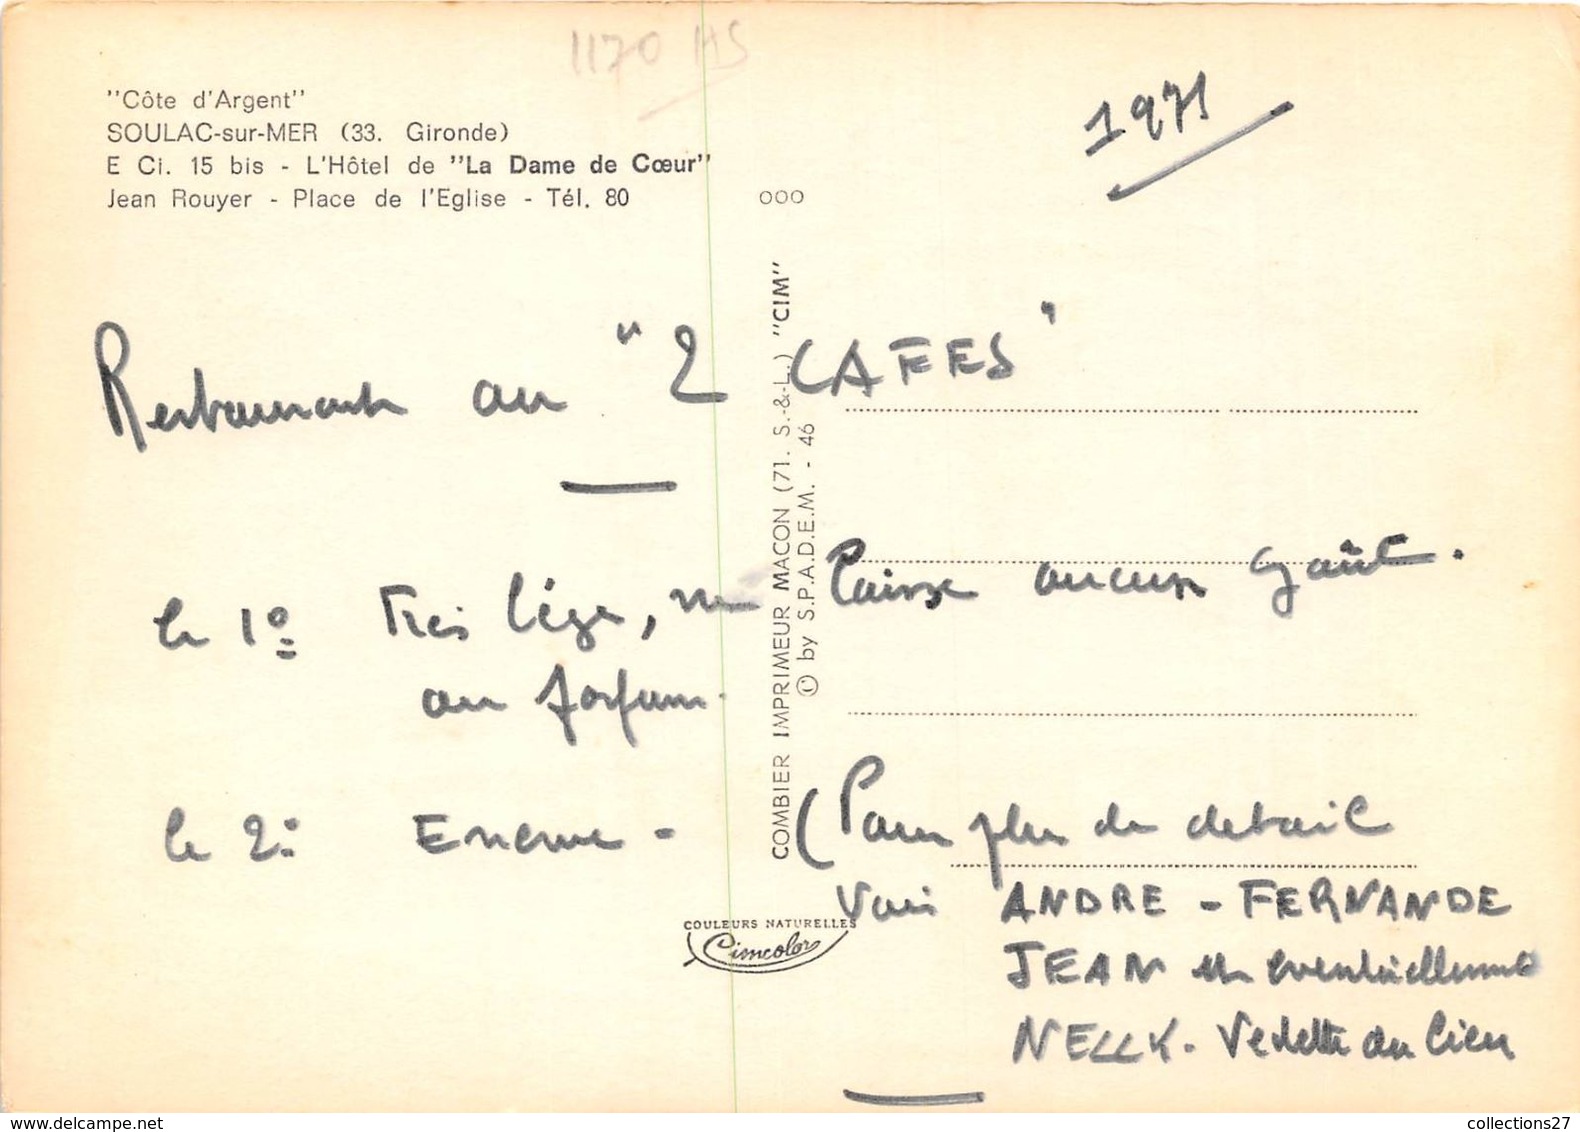 1170 HS
"Côte d'Argent"
SOULAC-sur-MER (33. Gironde)
E Ci. 15 bis - L'Hôtel de "La Dame de Cœur"
Jean Rouyer - Place de l'Eglise - Tél. 80
1971
Restaurant au "2 CAFES"
le 1º Très lége, ne laisse aucun goût.
au parfum.
le 2º Enorme - (Pour plus de detail
Voir ANDRE - FERNANDE
JEAN et eventuellement
NELLY. Vedette du lieu
COMBIER IMPRIMEUR MACON (71. S.-&-L.) "CIM"
© by S.P.A.D.E.M. - 46
COULEURS NATURELLES
Cimcolor
collections27